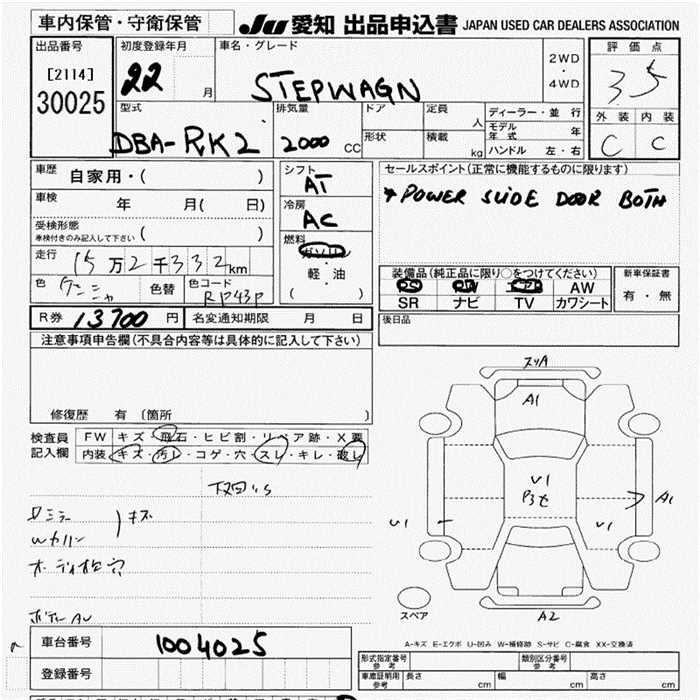 車内保管・守衛保管
JU 愛知 出品申込書 JAPAN USED CAR DEALERS ASSOCIATION
出品番号
[2114]
30025
初度登録年月
22 月
車名・グレード
STEPWAGN
2WD
・
4WD
評価点
3.5
外装 内装
C C
型式
DBA-RK2
排気量
2000 CC
ドア
形状
定員 人
積載 kg
ディーラー・並行
モデル年式 年
ハンドル 左・右
車歴 自家用・( )
車検 年 月( 日)
受検形態
車検付きのみ記入して下さい ( )
走行 15万2千332km
色
色替
色コード
RP43P
シフト
AT
冷房
AC
燃料
ガソリン
・
軽・油
( )
セールスポイント(正常に機能するものに限ります)
*POWER SLIDE DOOR BOTH
装備品(純正品に限り○をつけてください)
PS PW AW
SR ナビ TV カワシート
新車保証書
有・無
R券 13700円
名変通知期限 月 日
後日品
注意事項申告欄(不具合内容等は具体的に記入して下さい)
修復歴 有 〔箇所 〕
検査員
記入欄
FW キズ・飛石・ヒビ割・リペア跡・X要
内装 キズ・汚レ・コゲ・穴・スレ・キレ・破レ
キズ
スリA
A1
U1
A1
U1
U1
A2
スペア
A-キズ E-エクボ U-凹み W-補修跡 S-サビ C-腐食 XX-交換済
車台番号 1004025
登録番号
形式指定番号
参考
類別区分番号
参考
車庫証明用
参考
長さ cm
幅 cm
高さ cm